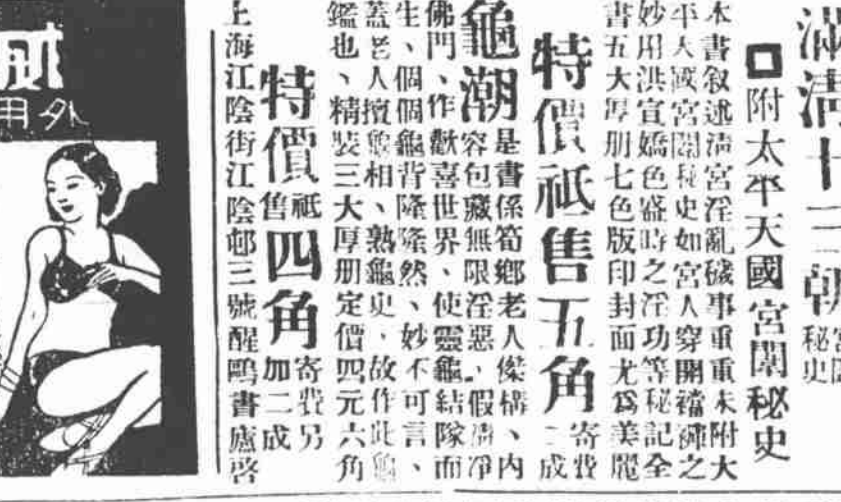 滿清十三朝
秘史
附太平天國宮闈秘史
本書叙述清宮淫亂穢事重重末附大
平天國宮闈秘史如宮人穿開襠褲之
妙用洪宣嬌色盛時之淫功等秘記全
書五大厚册七色版印封面尤爲美麗
特價祗售五角
寄費
二成
龜潮
是書係筍鄉老人傑構、内
容包藏無限淫惡、假清净
佛門、作歡喜世界、使靈龜結隊而
生、個個龜背隆隆然、妙不可言、
蓋老人擅龜相、熟龜史、故作此龜
鑑也、精裝三大厚册定價四元六角
特價祗售四角
寄費另
加二成
上海江陰街江陰邨三號醒鷗書廬啓
外用